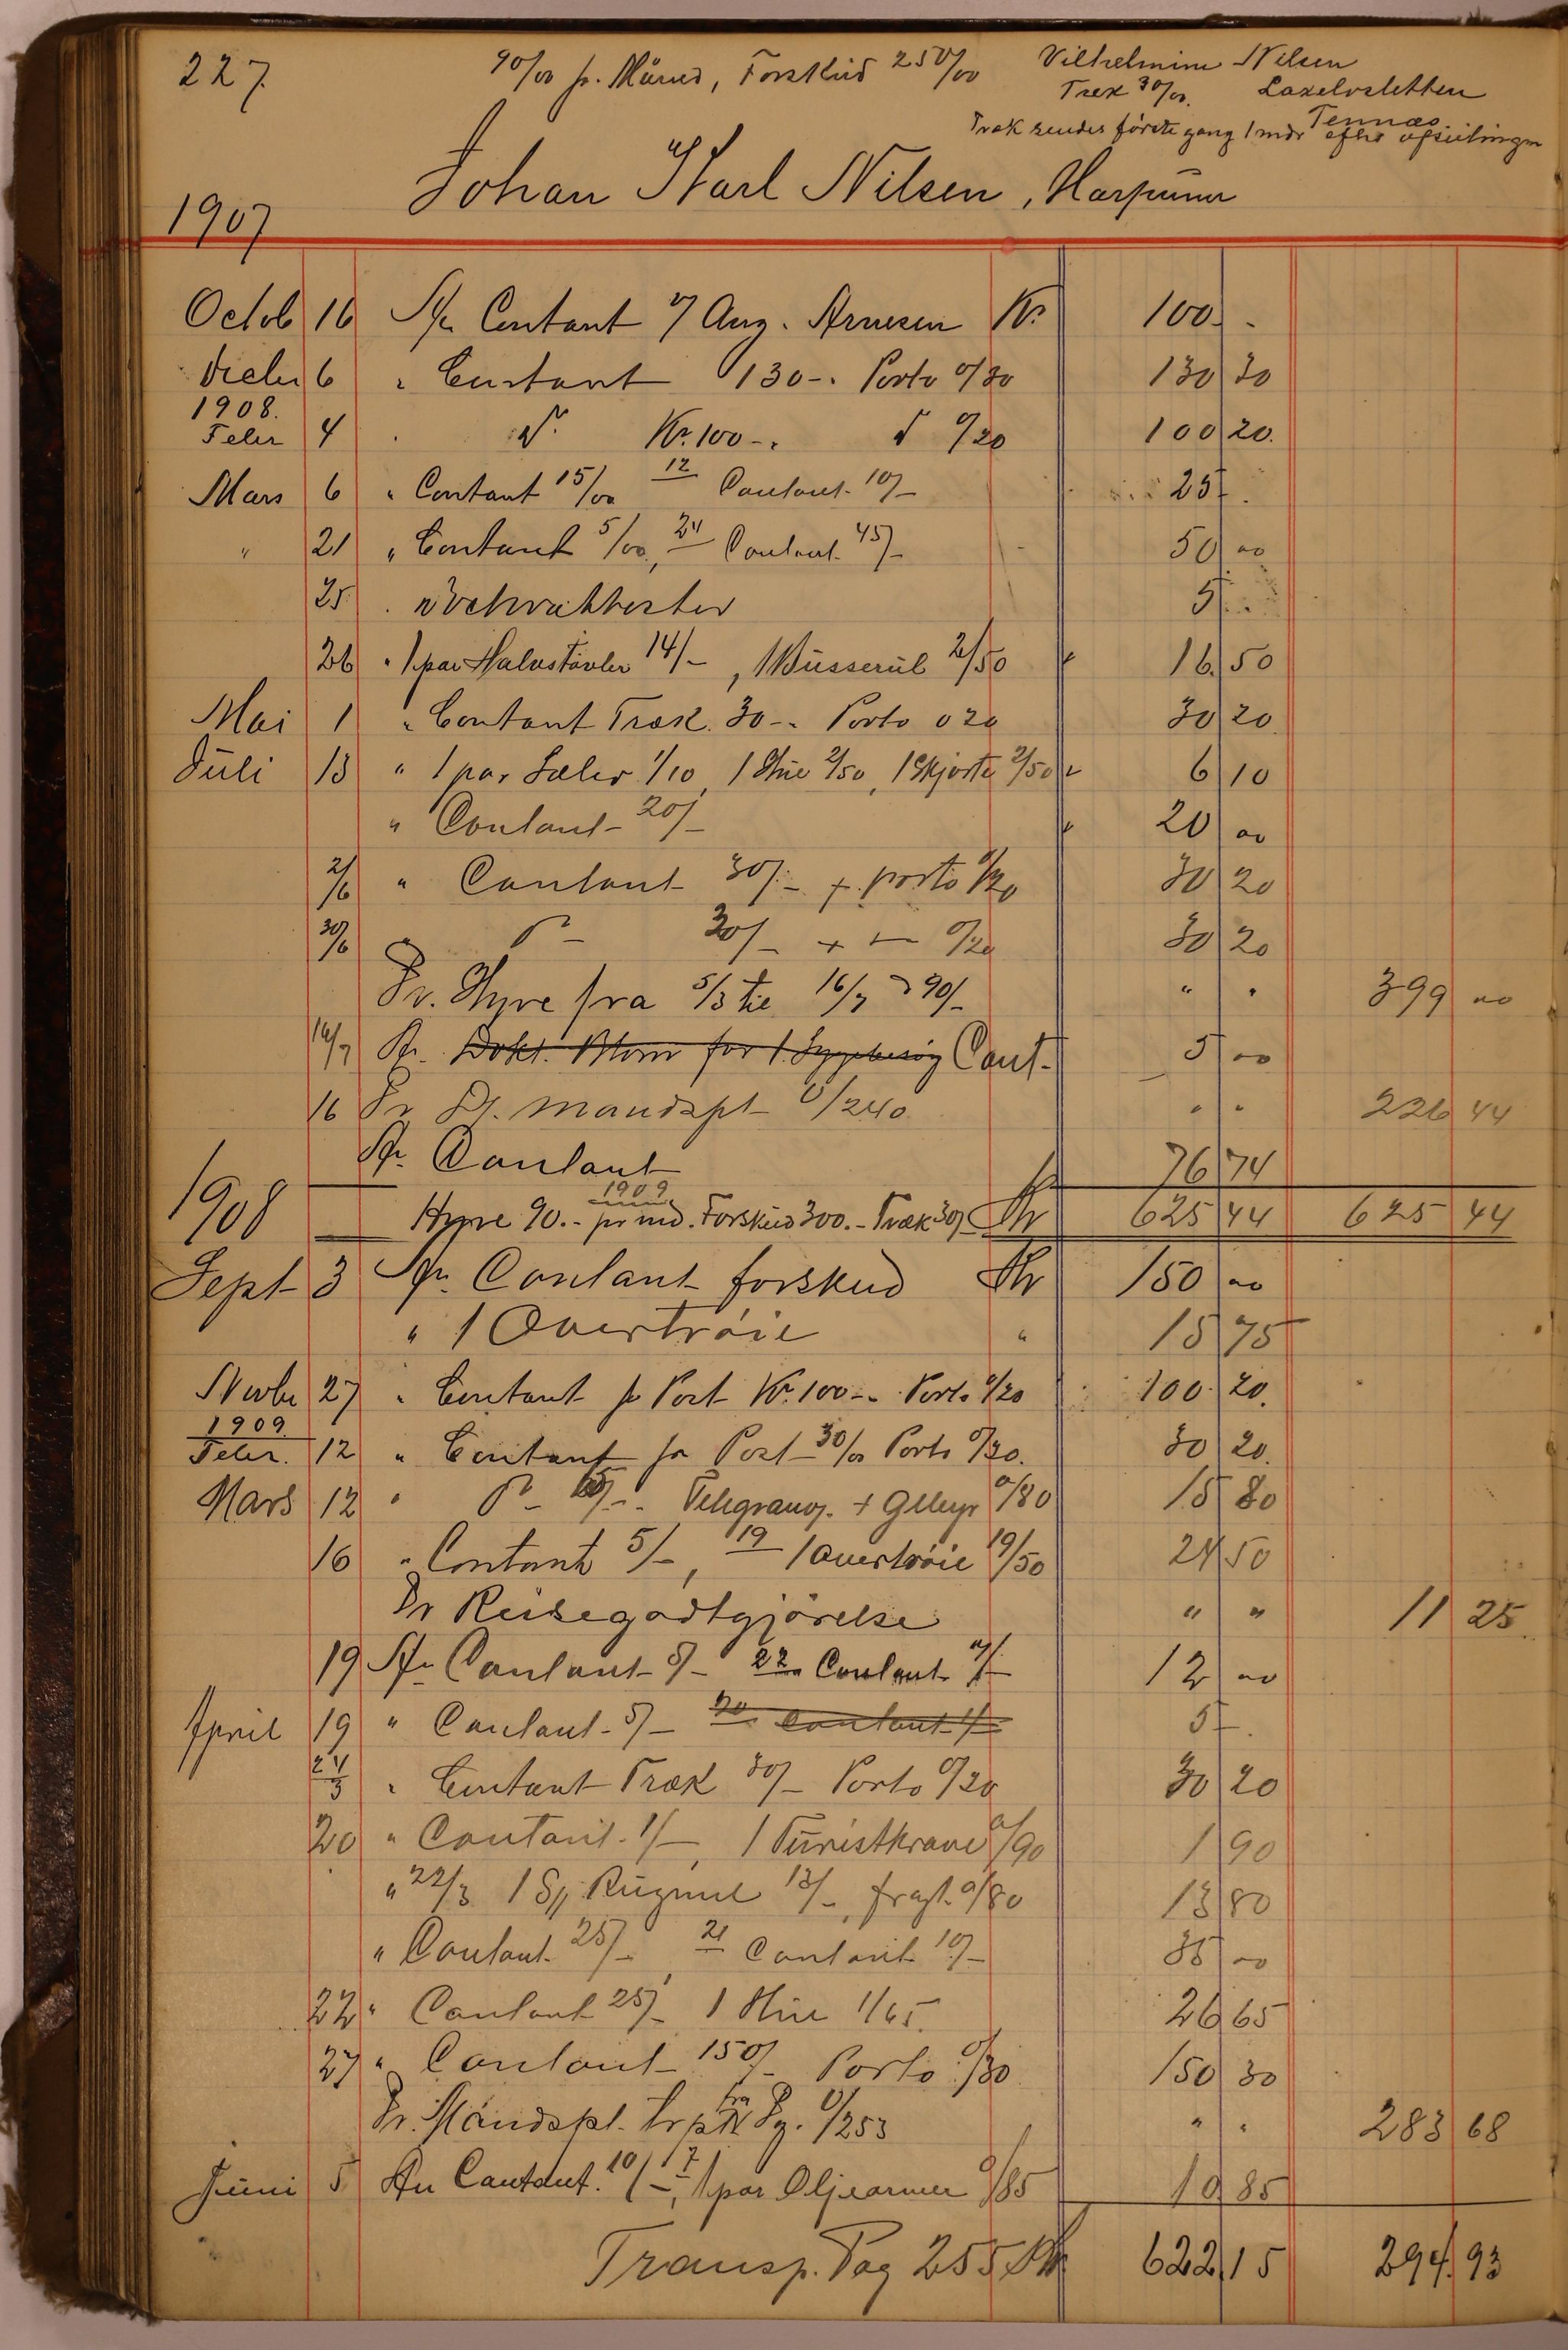 227.
90/00 pr. Måned, Forskud 250/00
Vilhelmine Nilsen
Træk 30/00. Laxelvsletten
Tennæs
Træk sendes første gang 1 mdr efter afseilingen
1907
Johan Karl Nilsen, Harpuner
Octob 16 An Contant v/ Aug. Arnesen Kr 100. -
Decbr 6 " Contant 130-. Porto 0/30 130 30
1908.
Febr 4 " Do Kr. 100-. do 0/20 100 20.
Mars 6 " Contant 15/00 12 Contant 10/- 25 -.
" 21 " Contant 5/00, 24 Contant 45/- 50 00
25 " 5 -.
26 " 1 par Halvstøvler 14/-, 1 Busserul 2/50 16. 50
Mai 1 " Contant Træk. 30-. Porto 0 20 30 20
Juli 13 " 1 par Sæler 1/10, 1 Hue 2/50, 1 Skjorte 2/50 6 10
" Contant 20/- 20 00
2/6 " Contant 30/- + porto 0/20 30 20
30/6 " Do 30/- + — 0/20 30 20
Pr. Hyre fra 5/3 til 16/7 à 90/- " " 399 00
14/7 An Dokt. Blom for 1 Sygebesøg Cont. 5 00
16 Pr Dg. mandspt 0/240 " " 226 44
An Contant 76 74
1908
1909
Hyre 90.- pr md. Forskud 300.- Træk 30/- Kr 625 44 625 44
Sept 3 An Contant forskud Kr 150 00
" 1 Overtrøie " 15 75
Novbr 27 " Contant pr Post Kr. 100-. Porto 0/20 100. 20.
1909.
Febr. 12 " Contant pr Post 30/00 Porto 0/20. 30 20.
Mars 12 " Do 15/-. Telegramg. + 0/80 15 80
16 " Contant 5/-, 19 1 Overtrøie 19/50 24 50
Pr Reisegodtgjørelse " " 11 25
19 An Contant 5/- 22 Contant 7/- 12 00
April 19 " Contant 5/- 20 Contant 1/- 5 -.
24/3 " Contant Træk 30/- Porto 0/20 30 20
20 " Contant 1/-, 1 Turistkrave 0/90 1 90
" 22/3 1 Sk Rugmel 13/-, fragt 0/80 13 80
" Contant 25/-, 21 Contant 10/- 35 00
22 " Contant 25/- 1 Hue 1/65. 26 65
27 " Contant 150/- Porto 0/30 150 30
Pr. Mandspt. fra Dg. 0/253 " " 283 68
Juni 5 An Contant. 10/-, 7 1 par Oljeærmer 0/85 10 85
Transp. Pag 255 Kr. 622 15 294. 93